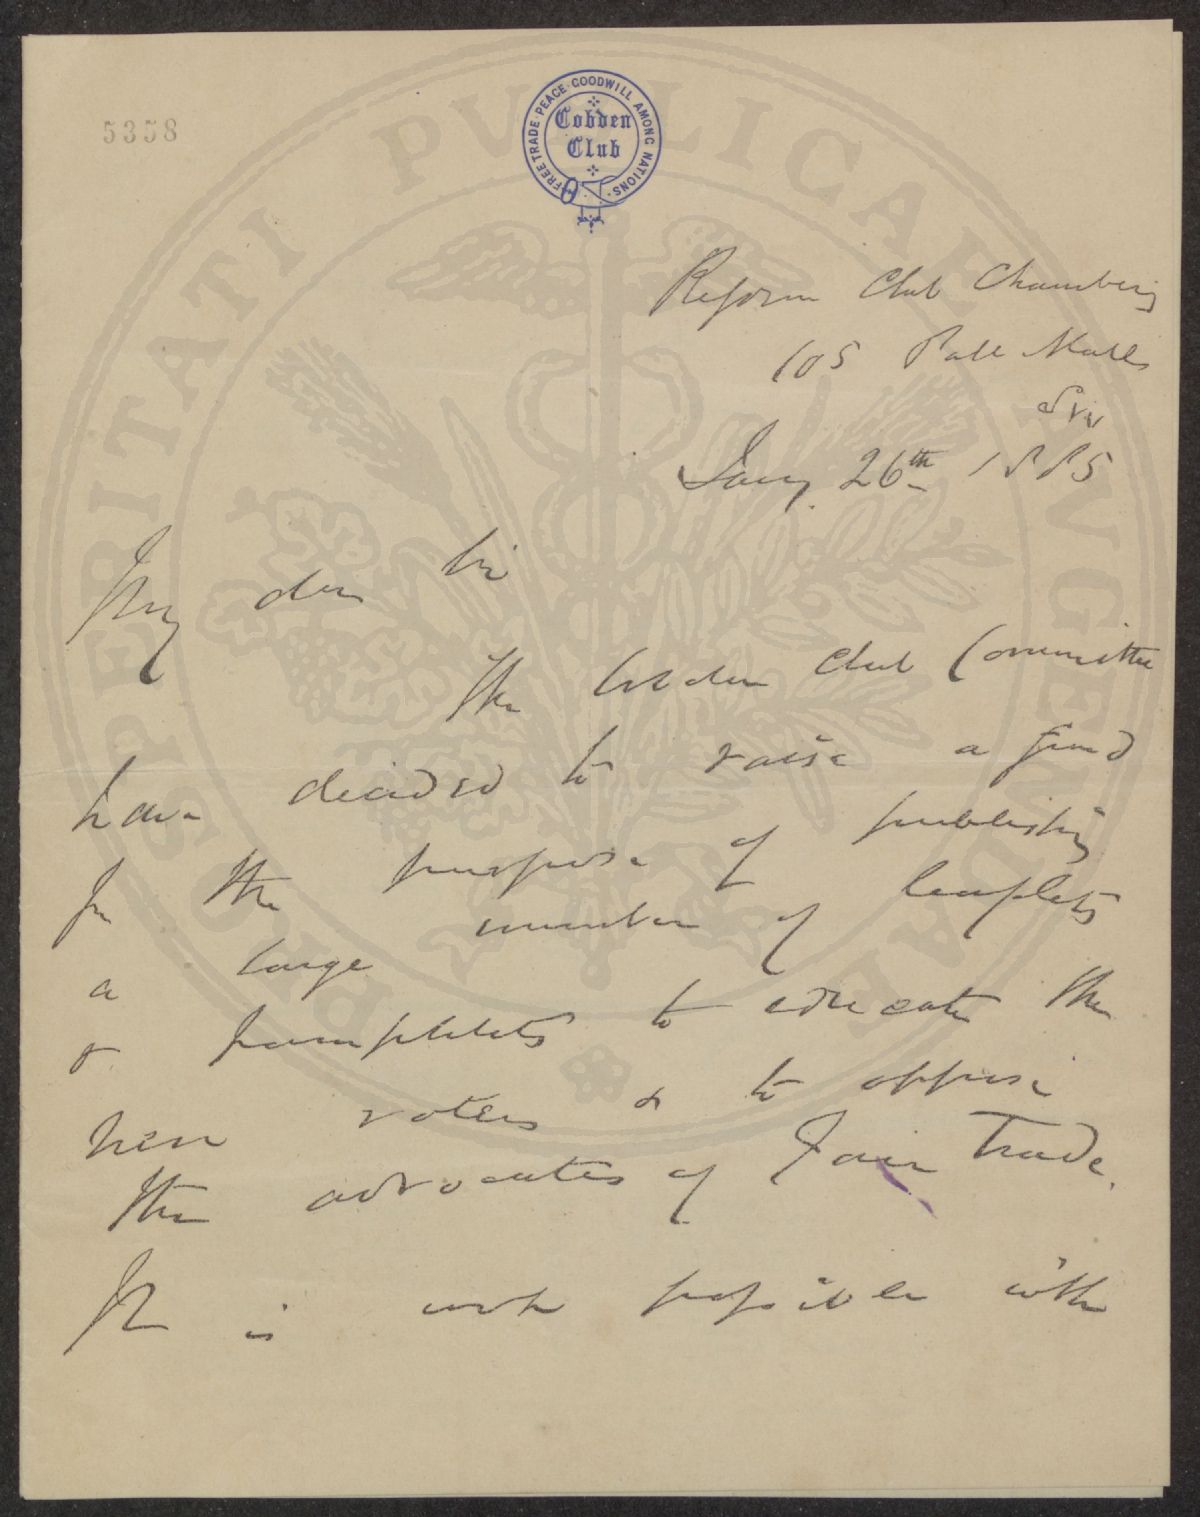 5358
FREE TRADE · PEACE · GOODWILL AMONG NATIONS ·
Cobden
Club
PROSPERITATI PUBLICAE AUGENDAE
Reform Club Chambers
105 Pall Mall
SW
Jany. 26th 1885
My dear Sir
The Cobden Club Committee
have decided to raise a fund
for the purpose of publishing
a large number of leaflets
& pamphlets to educate the
new voters & to oppose
the advocates of Fair Trade.
It is not possible with